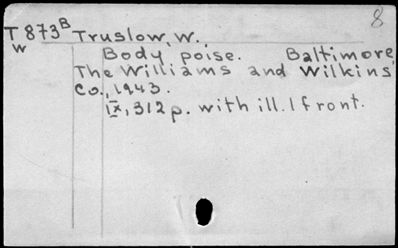 8
T 873B Truslow, W.
w
Body poise. Baltimore,
The Williams and Wilkins
Co., 1943.
IX, 312 p. with ill. 1 front.